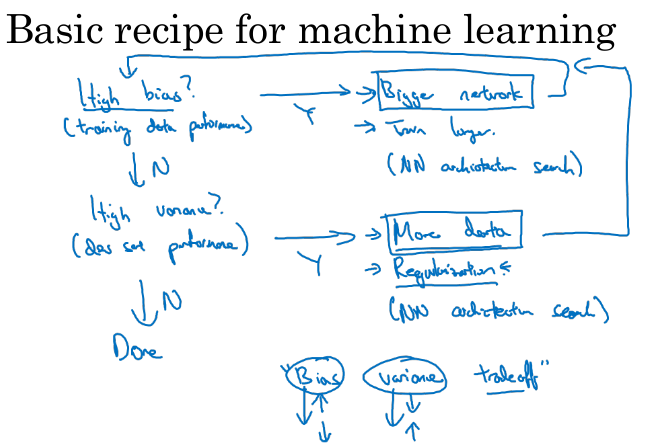 Basic recipe for machine learning
High bias? Y → Bigger network
(training data performance) → Train longer.
N (NN architecture search)
High variance?
(dev set performance) Y → More data
→ Regularization
N (NN architecture search)
Done
"Bias variance tradeoff"